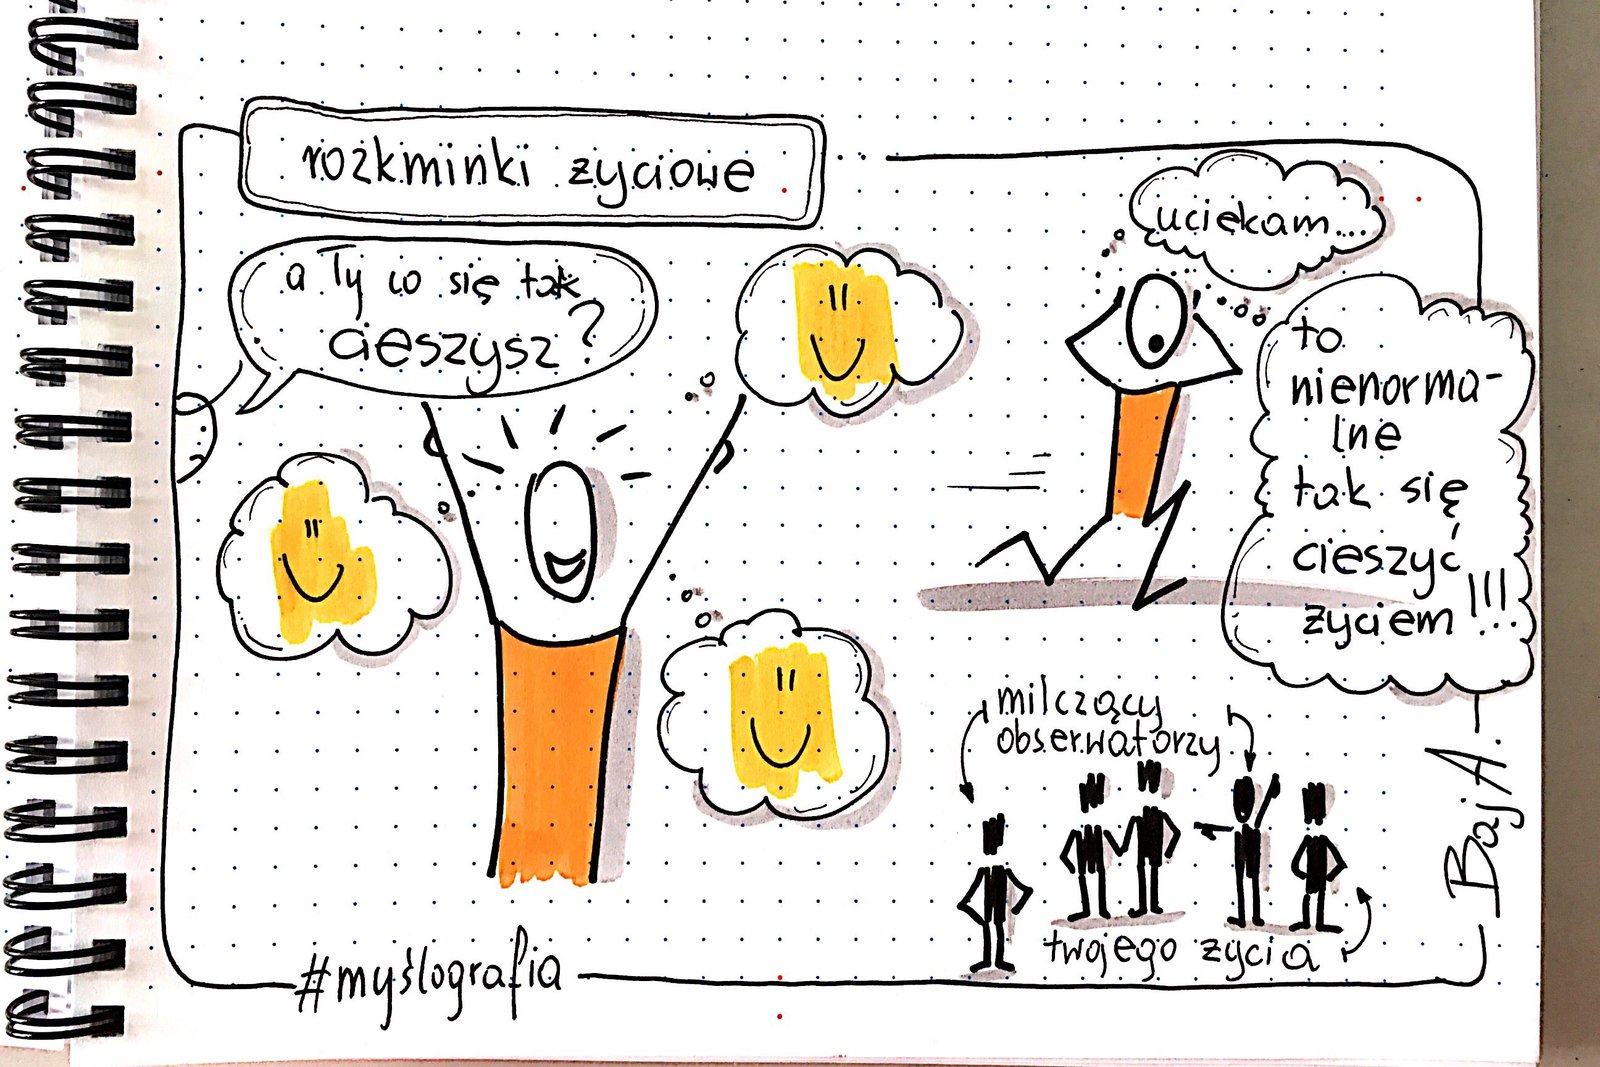 rozkminki zyciowe
a Ty co się tak
cieszysz?
uciekam...
to
nienorma-
lne
tak się
cieszyć
zyciem!!!
milczący
obserwatorzy
twojego zycia
Baj A.
#myślografia